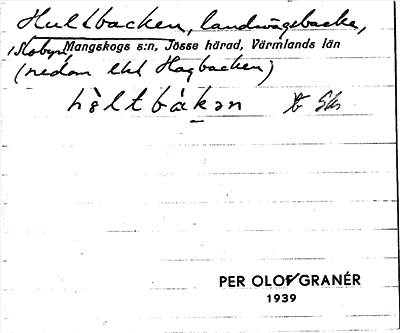 Hultbacken, landsvägsbacke,
i Stobyn, Mangskogs s:n, Jösse härad, Värmlands län
(nedom ekt Hagbacken)
hùltbákən
PER OLOF GRANÉR
1939